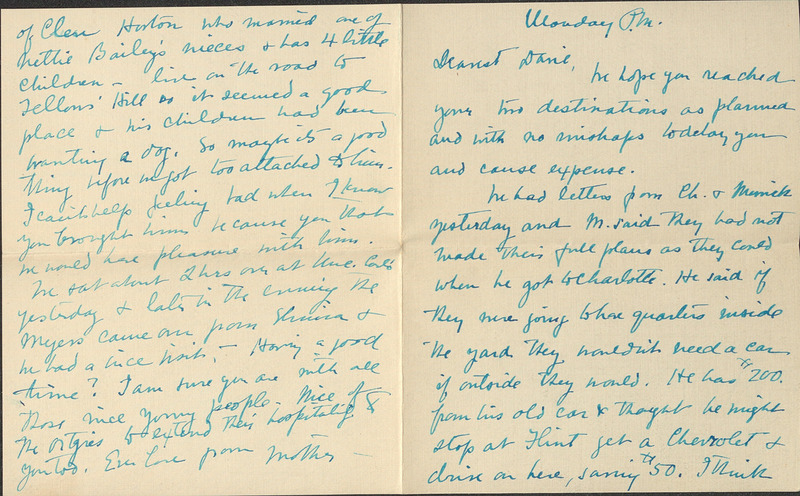 Monday P.M.
Dearest Dave,
We hope you reached
your two destinations as planned
and with no mishaps to delay you
and cause expense.
We had letters from Ch. & Merrick
yesterday and M. said they had not
made their full plans as they could
when he got to Charlotte. He said if
they were going to have quarters inside
the yard they wouldn't need a car
if outside they would. He has $200.
from his old car & thought he might
stop at Flint get a Chevrolet &
drive on here, saving $50. I think
of Clem Horton who married one of
Nettie Bailey's nieces & has 4 little
children - live on the road to
Fellows' Hill so it seemed a good
place & his children had been
wanting a dog. So maybe its a good
thing before we got too attached to him.
I can't help feeling bad when I know
you brought him because you that
we would have pleasure with him.
We sat about 2 hrs over at Unc. Carl's
yesterday & later in the evening the
Myers came over from Elmira &
we had a nice visit. - Having a good
time? I am sure you are with all
those nice young people. Nice of
the to extend their hospitality to
you too. Ever love from Mother -